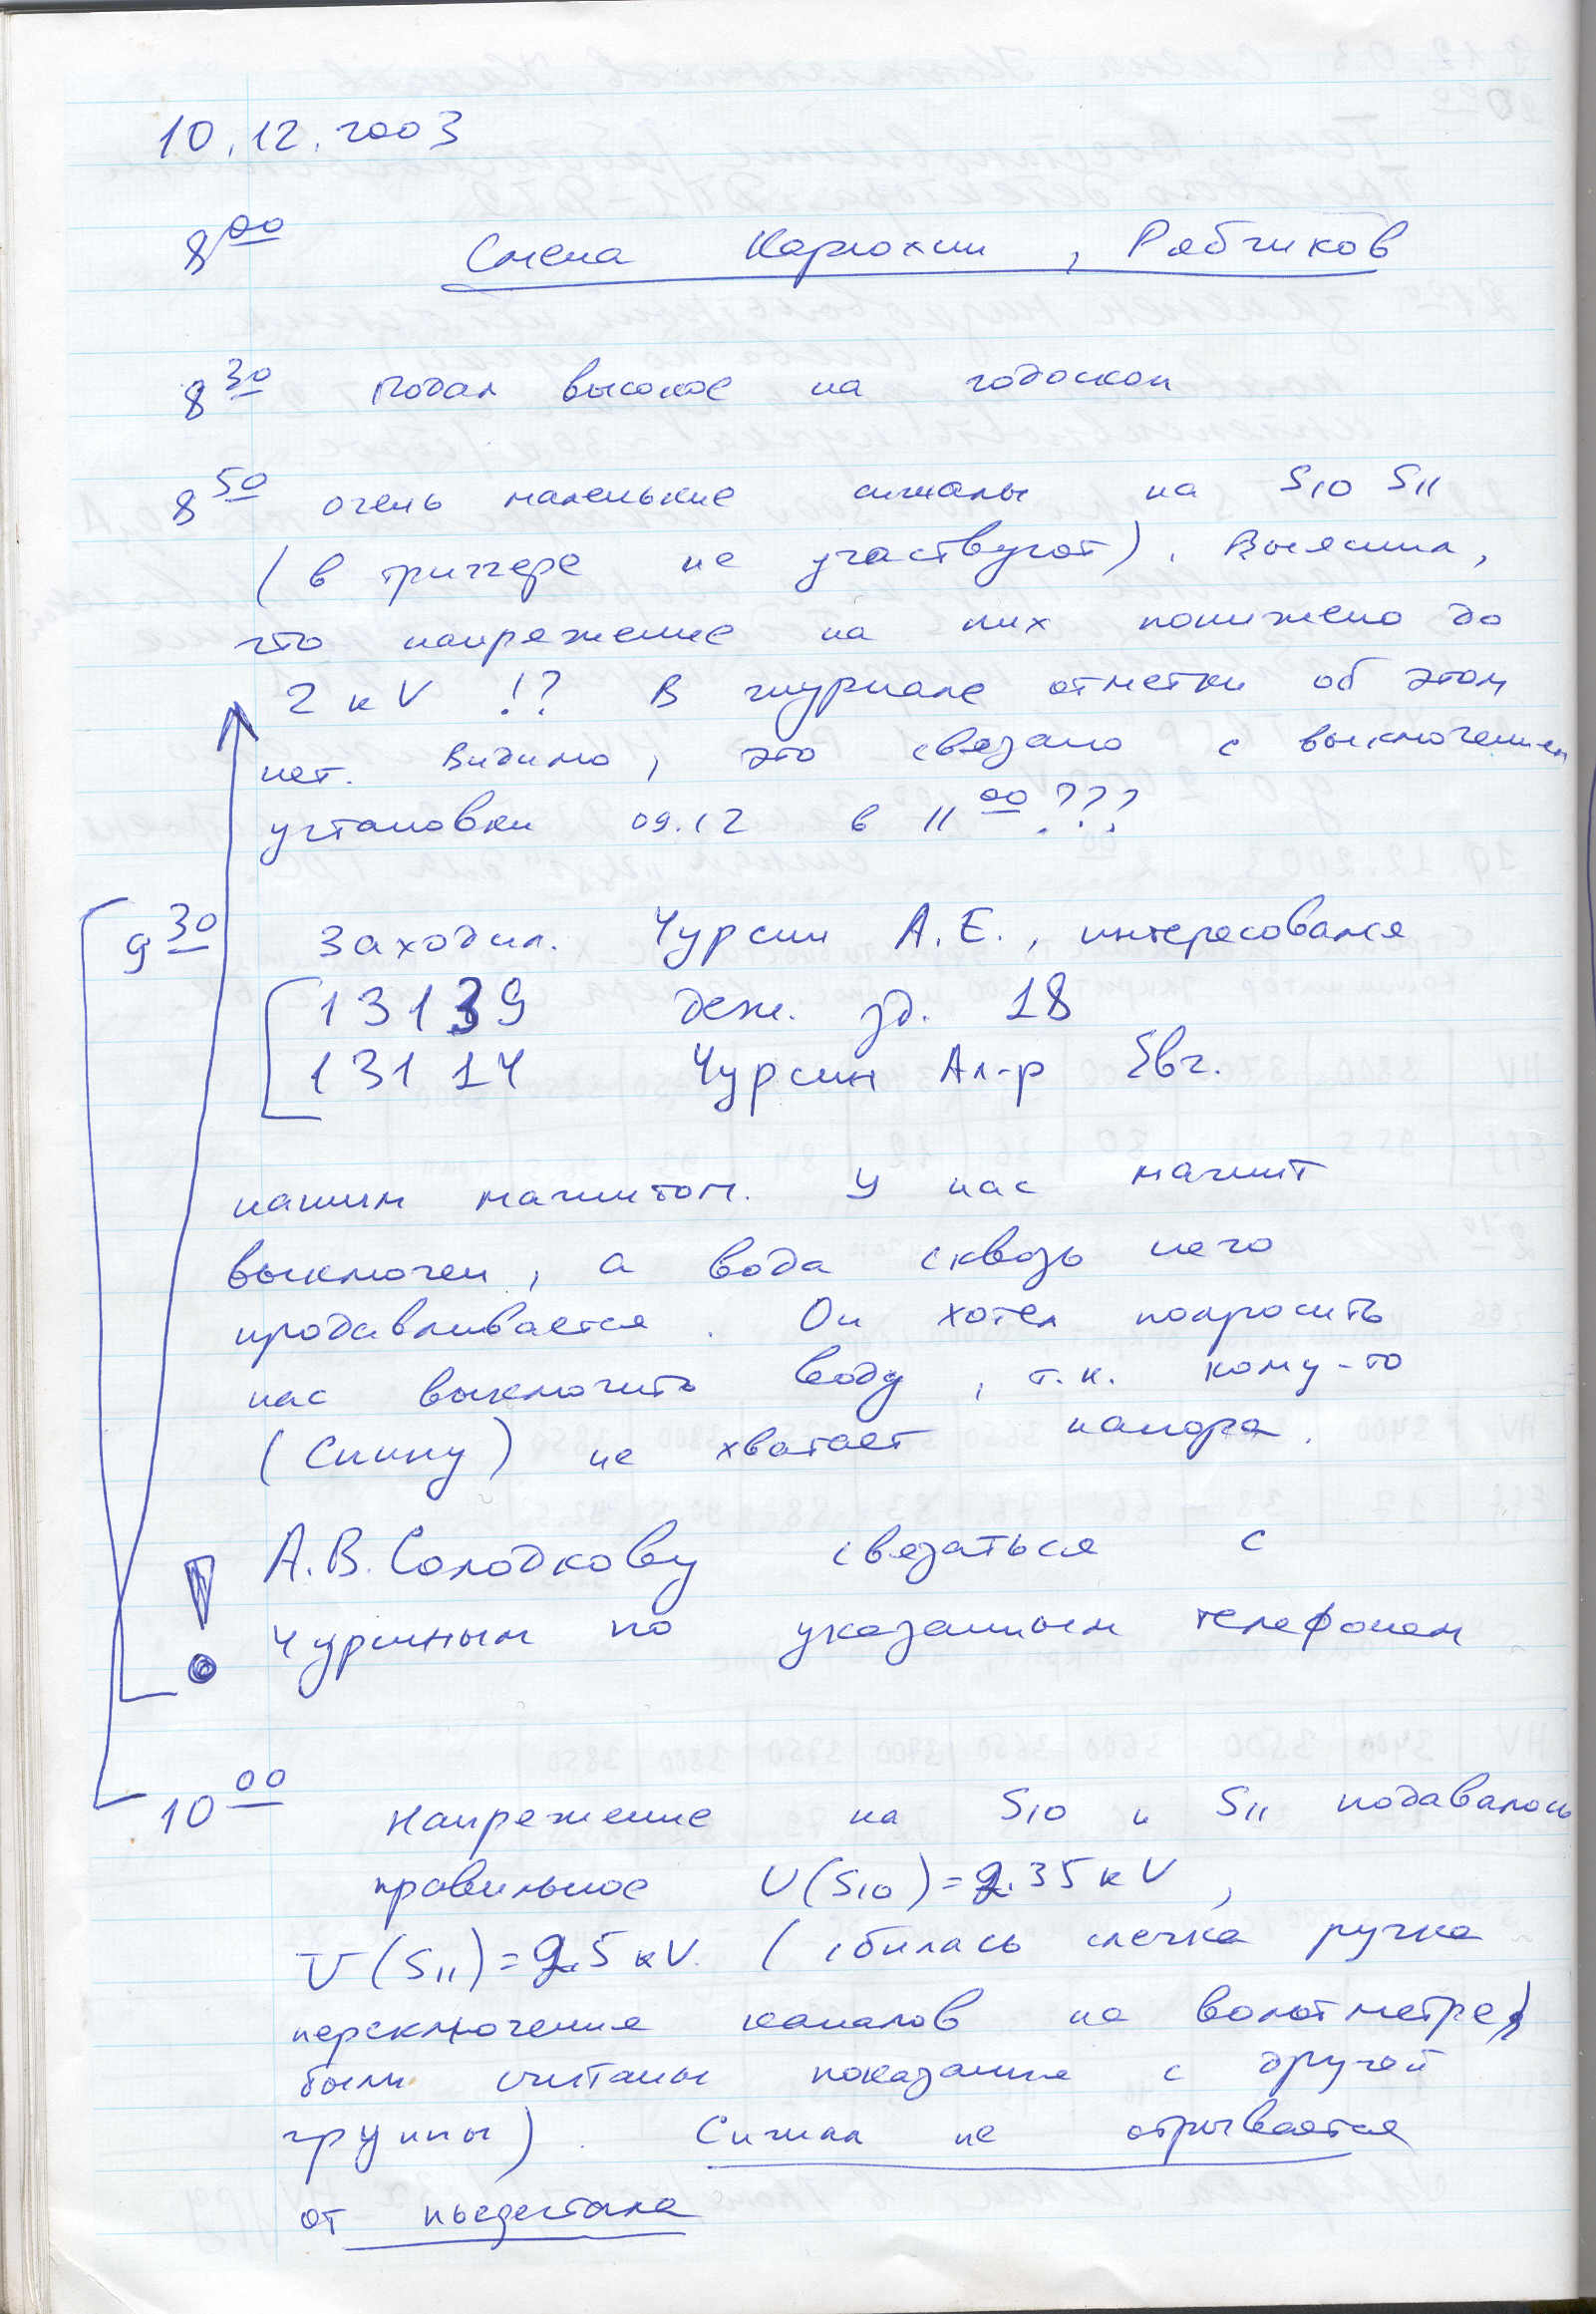 10.12.2003
8 00 Смена Карюхин, Рябчиков
8 30 Подал высокое на годоскоп
8 50 очень маленькие сигналы на S10 S11
(в триггере не участвуют). Выяснил,
что напряжение на них понижено до
2 кV !? В журнале отметки об этом
нет. Видимо, это связано с выключением
установки 09.12 в 11 00 ???
9 30 Заходил. Чурсин А.Е., интересовался
13139 деж. зд. 18
13114 Чурсин Ал-р Евг.
нашим магнитом. У нас магнит
выключен, а вода сквозь него
продавливается. Он хотел попросить
нас выключить воду, т.к. кому-то
(Спину) не хватает напора.
! А.В. Солодкову связаться с
Чурсиным по указанным телефонам
10 00 Напряжение на S10 и S11 подавалось
правильное U(S10)=2.35 кV,
U(S11)=2.5 кV. (сбилась слегка ручка
переключения каналов на вольтметре,
были считаны показания с другой
группы). Сигнал не отрывается
от пьедестала